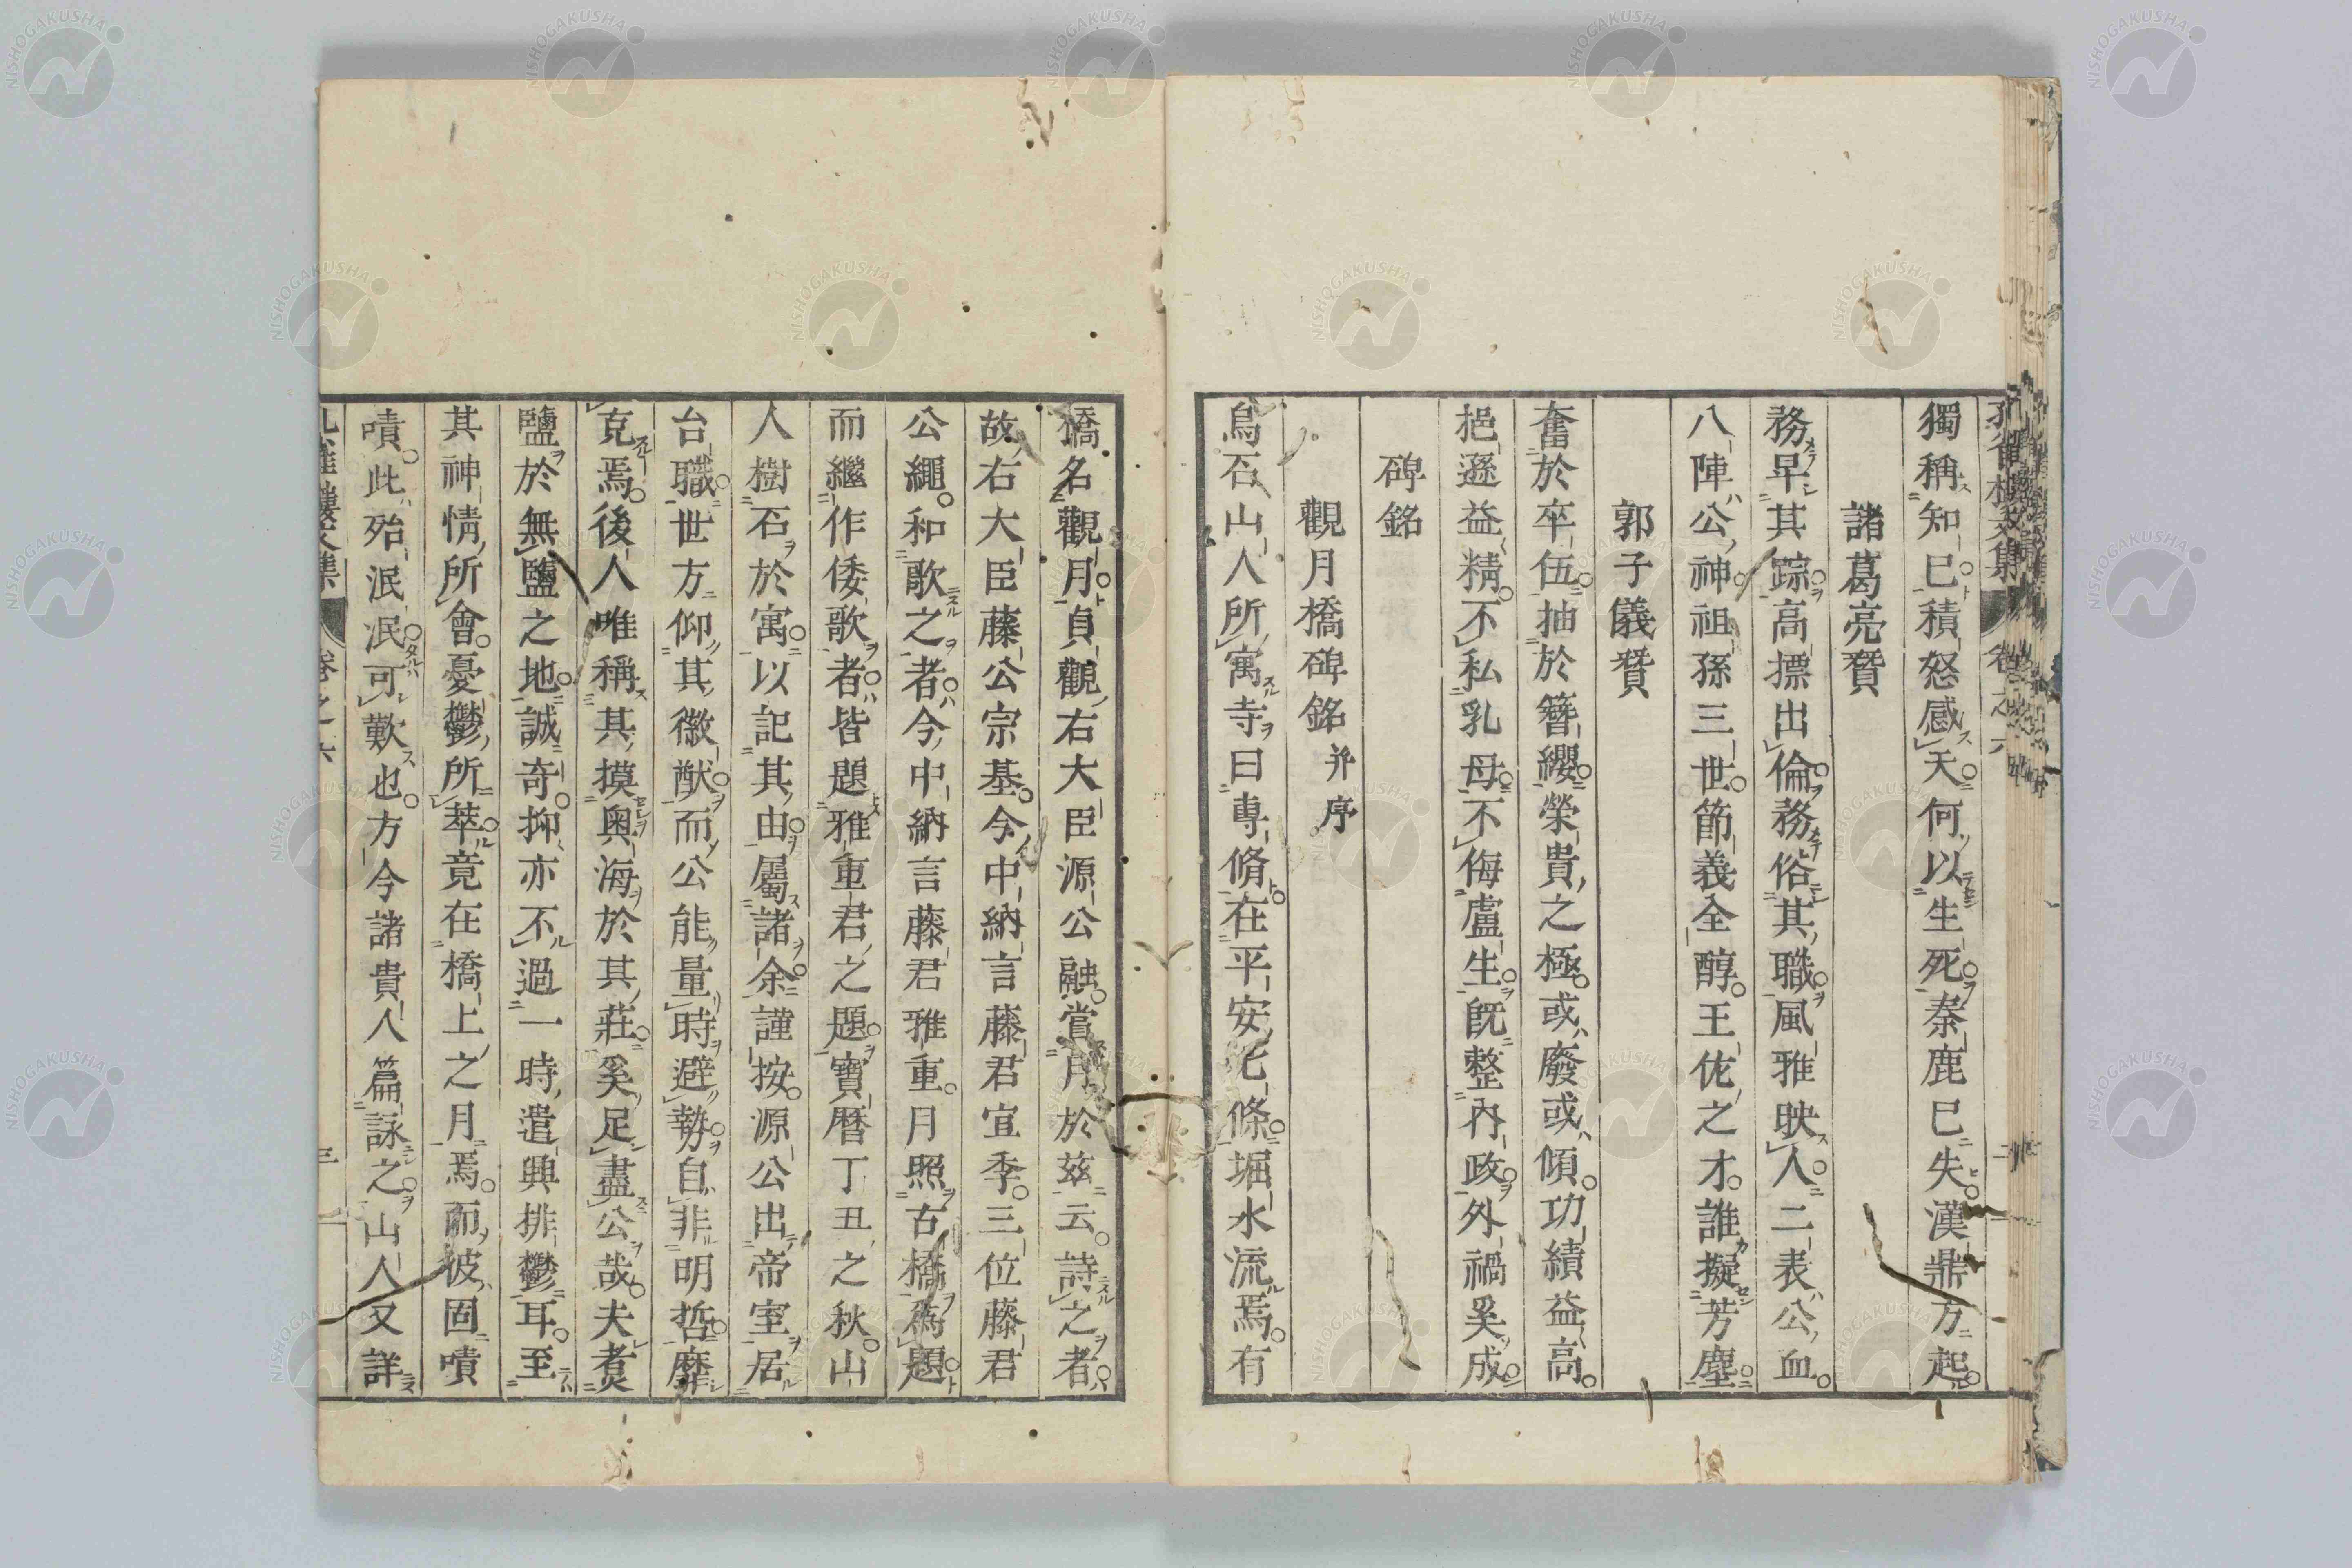 獨稱知已積怒感天何以生死秦鹿已失漢鼎方起
諸葛亮賛
務早其踪高摽出倫務俗其職風雅映人二表公血
八陣公神祖孫三世節義全醇王佐之才誰擬芳塵
郭子儀賛
奮於卒伍抽於簪纓榮貴之極或廢或傾功績益高
挹遜益精不私乳母不侮盧生旣整內政外禍奚成
碑銘
觀月橋碑銘并序
烏石山人所寓寺曰專脩在平安七條堀水流焉有
橋名觀月貞觀右大臣源公融賞月於茲云詩之者
故右大臣藤公宗基今中納言藤君宜季三位藤君
公繩和歌之者今中納言藤君雅重月照古橋爲題
而繼作倭歌者皆題雅重君之題寶曆丁丑之秋山
人樹石於寓以記其由屬諸余謹按源公出帝室居
台職世方仰其徽猷而公能量時避勢自非明哲靡
克焉後人唯稱其摸奧海於其莊奚足盡公哉夫煑
鹽於無鹽之地誠奇抑亦不過一時遣興排鬱耳至
其神情所會憂鬱所萃竟在橋上之月焉而彼固嘖
嘖此殆泯泯可歎也方今諸貴人篇詠之山人又詳
孔雀樓文集 卷之六 三